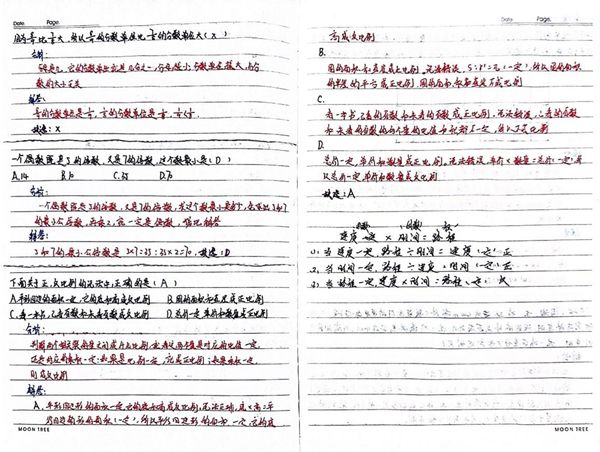 Date. Page.
因为 比 大,所以 的分数单位比 的分数单位大(X)
分析:
分母是几,它的分数单位就是几分之一,分母越小,分数单位越大,与分
数的大小无关
解答:
的分数单位是 , 的分数单位是
故选:X
一个偶数既是5的倍数,又是7的倍数,这个数最小是(D)
A.14 B.10 C.35 D.70
分析:
一个偶数既是5的倍数,又是7的倍数,求这个数最小是多少,也就是5和7
的最小公倍数,再乘2,就一定是偶数,据此解答
解答:
5和7的最小公倍数是5×7=35;35×2=70,故选:D
下面关于正、反比例的说法中,正确的是(A)
A.平行四边形的面积一定,它的底和高成反比例 B.圆的面积和直径成正比例
C.看一本书,已看页数和未看页数成反比例 D.总价一定,单价和数量成正比例
分析:
判断两个相关联的量之间成什么比例,就看这两个量是对应的比值一定,
还是对应的乘积一定;如果是比值一定,就成正比例;如果乘积一定,
则成反比例
解答:
A.平行四边形的面积一定,它的底和高成反比例,说法正确,底×高=平
行四边形的面积(一定),所以平行四边形的面积一定,它的底
MOON TREE
Date. Page.
高成反比例
B.
圆的面积和直径成正比例,说法错误,S:r²=π(一定),所以圆的面积
和半径的平方成正比例,圆的面积和直径不成比例
C.
看一本书,已看的页数和未看的页数成正比例,说法错误,已看的页数
和未看的页数的两个量的比值和积都不一定,所以不成比例
D.
总价一定,单价和数量成正比例,说法错误,单价×数量=总价(一定),所
以总价一定,单价和数量成反比例
故选:A
速度一定×时间=路程
①当速度一定,路程÷时间=速度(一定)正
②当时间一定,路程÷速度=时间(一定)正
③当路程一定,速度×时间=路程(一定)反
MOON TREE